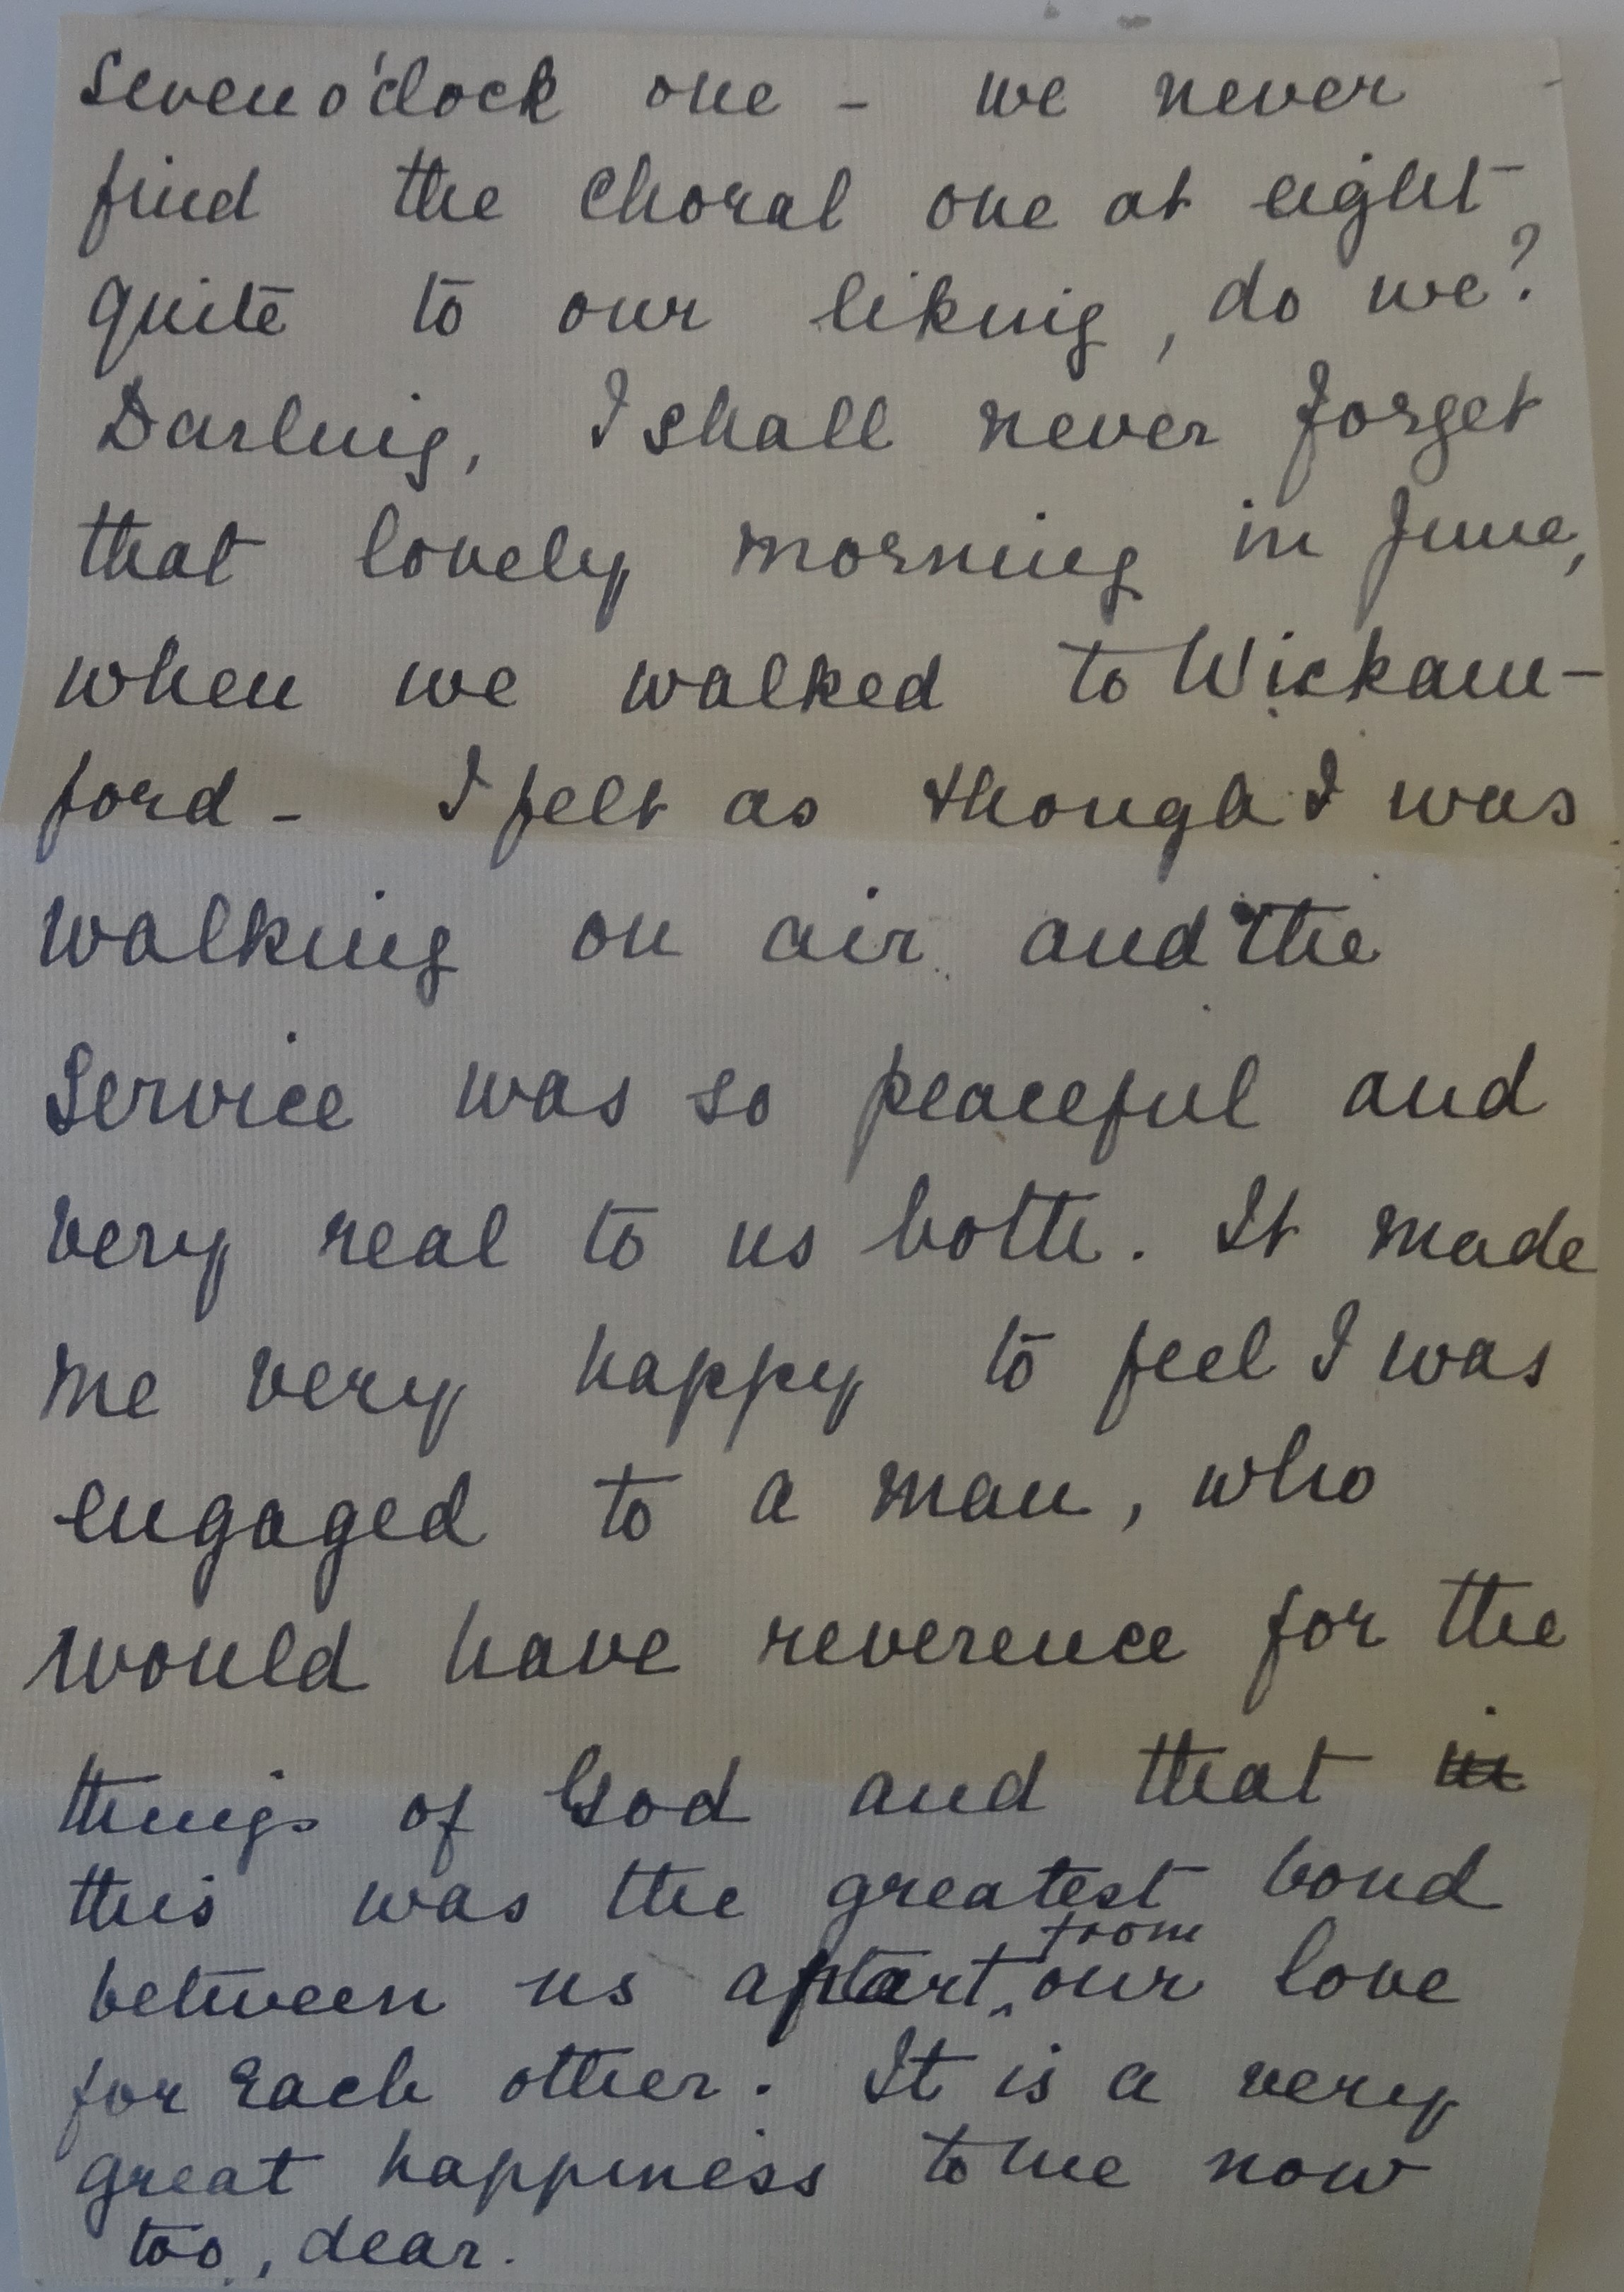 seven o'clock one - we never
find the choral one at eight
quite to our liking, do we?
Darling, I shall never forget
that lovely morning in June,
when we walked to Wickam-
ford - I felt as though I was
walking on air and the
service was so peaceful and
very real to us both. It made
me very happy to feel I was
engaged to a man, who
would have reverence for the
things of God and that in
this was the greatest bond
between us apart from our love
for each other. It is a very
great happiness to me now
too, dear.